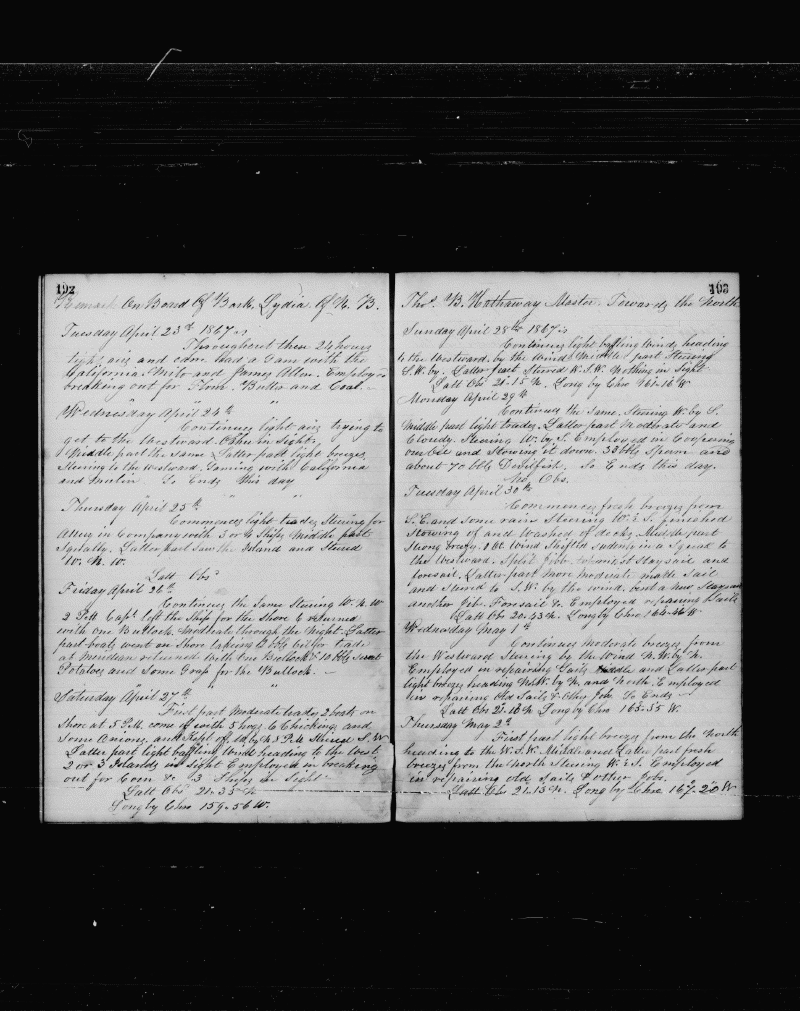 192
Remark On Board Of Bark, Lydia Of N. B.
Tuesday April 23d 1867
Throughout these 24 hours
light airs and calm had a Gam with the
California Milo and Allen. Employed
breaking out for Flour Butter and Coal.
Wednesday April 24th
Continues light airs trying to
get to the Westward. in Sight.
Middle part the same Latter part light breezes
Steering to the Westward. Gaming with California
and So Ends this day
Thursday April 25th
Commences light trades Steering for
in Company with 3 or 4 Ships Middle part
Squally. Latter part Saw the Island and Steered
W. N. W.
Latt Obs
Friday April 26th
Continues the Same Steering W. N. W
2 P.M Capt left the Ship for the Shore & returned
with one Bullock. Moderate through the Night. Latter
part boats went on Shore taking bbls for trade
at Meridian returned with one Bullock & 10 bbls Sweet
Potatoes and Some Grap for the Bullock.
Saturday April 27th
First part Moderate trades 2 boats on
Shore at 5 P.M. come off with 5 hogs 6 Chickens and
Some Onions. and Kept of at 5 P.M Steered S. W
Latter part light baffling Winds heading to the West
2 or 3 Islands in sight Employed in breaking
out for Corn &c 3 Ships in Sight
Latt Obs 21-35 N
Long by Chro 159-56 W.
193
Thos. B. Hathaway Master. Towards the North
Sunday April 28th 1867
Continues light baffling Winds heading
to the Westward. by the Wind Middle part Steering
S.W. by. Latter part Steered W.S.W. Nothing in Sight
Latt Obs 21-15 N. Long by Chro 161-16 W
Monday April 29th
Continues the Same. Steering W. by S.
Middle part light trades. Latter part Moderate and
Cloudy. Steering W. by S. Employed in Coopering
our oil and Stowing it down. 33 bbls Sperm and
about 70 bbls Devilfish. So Ends this day.
No Obs.
Tuesday April 30th
Commences fresh breezes from
S.E. and Some rain Steering W. & S. finished
Stowing of and Washed of decks. Middle part
Strong breezes. the Wind Shifted sudenly in a Squal to
the Westward. Split Jibb topmast Staysail and
foresail. Latter part More Moderate made Sail
and Steered to S.W. by the wind. bent a New Staysail
another Jib. Foresail &c Employed repairing Sails
Latt Obs 20-43 N. Long by Chro 164-46 W
Wednesday May 1st
Continues Moderate breezes from
the Westward Steering by the Wind N. W. by N.
Employed in repairing Sails Middle and Latter part
light breezes heading N.W. by N. and North. Employed
in repairing old Sails & other Jobs So Ends
Latt Obs 21-16 N Long by Chro 165-55 W.
Thursday May 2d
First part light breezes from the North
heading to the W.S.W. Middle and Latter part fresh
breezes from the North Steering W. & S. Employed
in repairing old Sails & other Jobs.
Latt Obs 21-13 N. Long by Chro 167-20 W